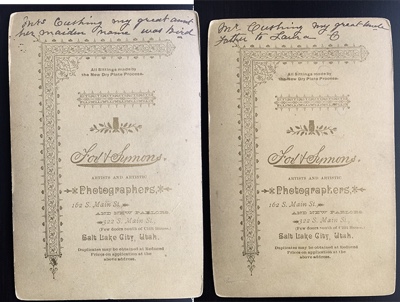 Mrs Cushing my great aunt
her maiden name was Bird
All Sittings made by
the New Dry Plate Process.
Fox & Symons.
ARTISTS AND ARTISTIC
Photographers,
162 S. Main St.,
AND NEW PARLORS
122 S. Main St.,
(Few doors south of Clift House)
Salt Lake City, Utah.
Duplicates may be obtained at Reduced
Prices on application at the
above address.
Mr. Cushing my great uncle
Father to
All Sittings made by
the New Dry Plate Process.
Fox & Symons.
ARTISTS AND ARTISTIC
Photographers,
162 S. Main St.,
AND NEW PARLORS
122 S. Main St.,
(Few doors south of Clift House)
Salt Lake City, Utah.
Duplicates may be obtained at Reduced
Prices on application at the
above address.